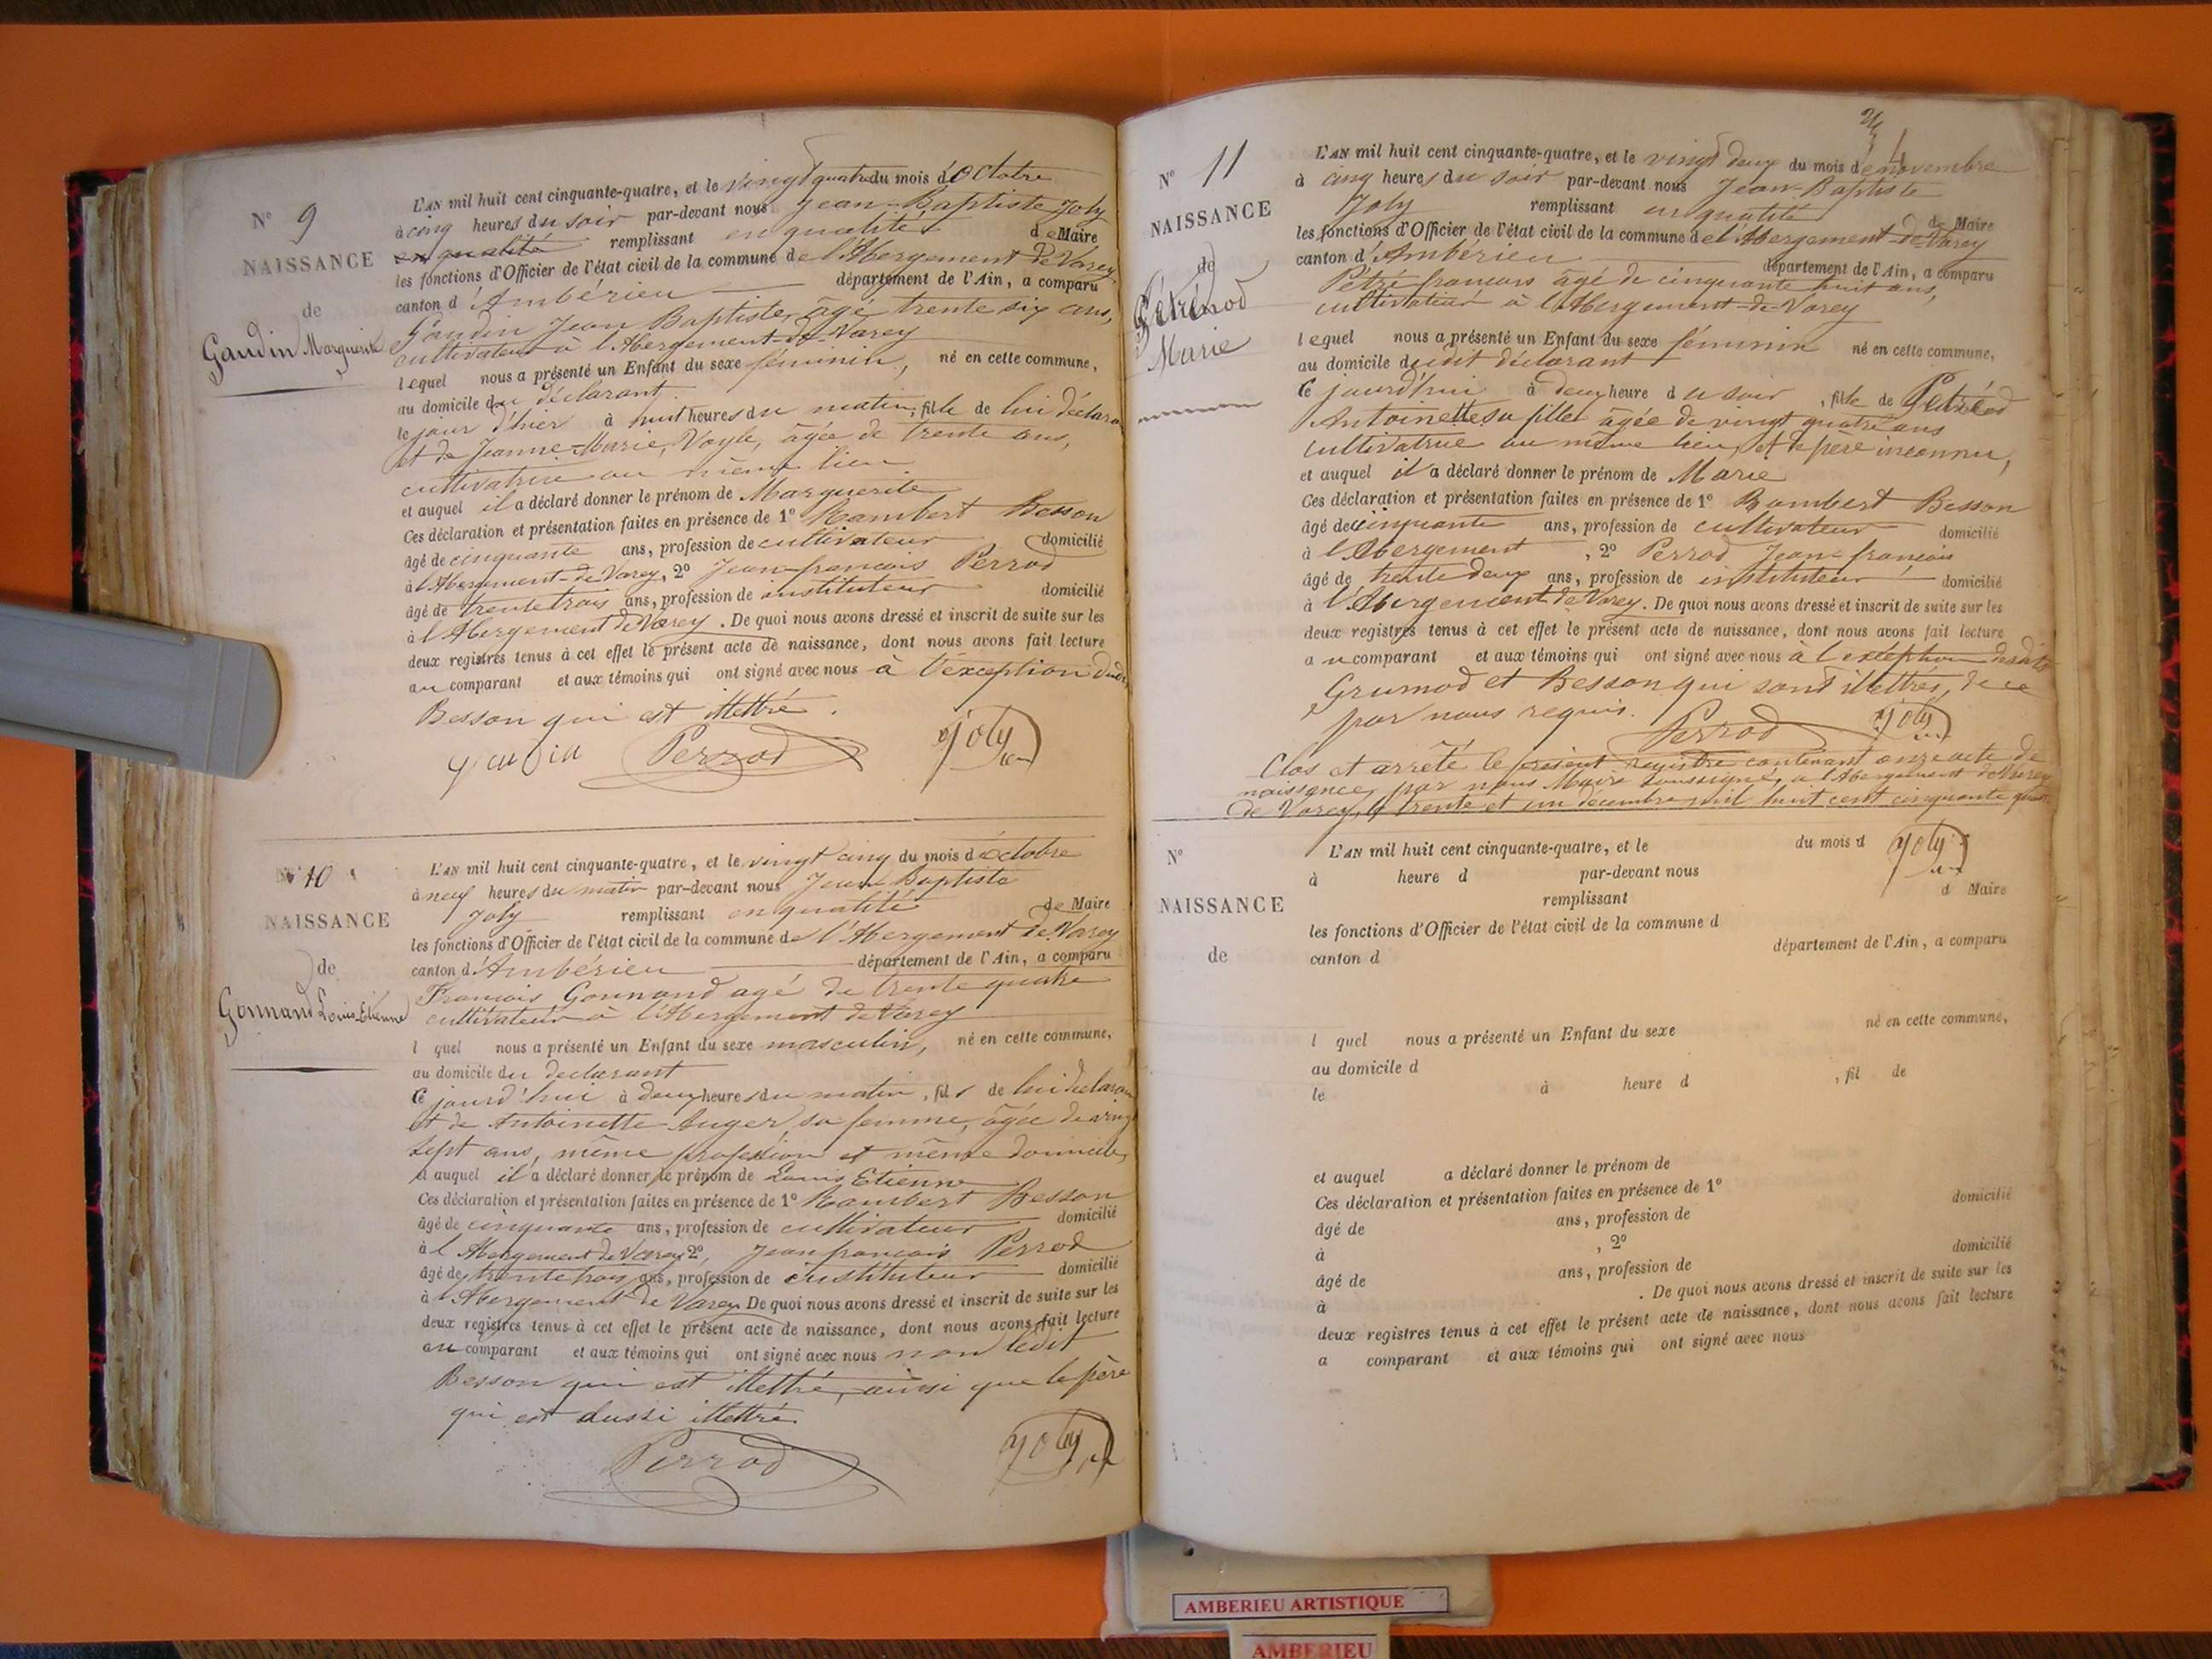 N° 9
NAISSANCE
de
Gaudin Marguerite
L'AN mil huit cent cinquante-quatre, et le vingt quatre du mois d'Octobre
à cinq heures du soir par-devant nous Jean-Baptiste Joly
en qualité remplissant en qualité de Maire
les fonctions d'Officier de l'état civil de la commune de l'Abergement de Varey
canton d'Ambérieu département de l'Ain, a comparu
Gaudin Jean Baptiste, âgé trente six ans,
cultivateur à l'Abergement-de-Varey
lequel nous a présenté un Enfant du sexe féminin, né en cette commune,
au domicile du déclarant.
le jour d'hier à huit heures du matin, fille de lui déclara
et de Jeanne-Marie, Voyle, âgée de trente ans,
cultivatrice au même lieu
et auquel il a déclaré donner le prénom de Marguerite
Ces déclaration et présentation faites en présence de 1° Rambert Besson
âgé de cinquante ans, profession de cultivateur domicilié
à l'Abergement-de-Varey, 2° Jean-francois Perrod
âgé de trente trois ans, profession de instituteur domicilié
à l'Abergement de Varey. De quoi nous avons dressé et inscrit de suite sur les
deux registres tenus à cet effet le présent acte de naissance, dont nous avons fait lecture
au comparant et aux témoins qui ont signé avec nous à l'exception dudi
Besson qui est illettré.
gaudin Perrod Joly
N° 10
NAISSANCE
de
Gonnand Louis-Etienne
L'AN mil huit cent cinquante-quatre, et le vingt cinq du mois d'octobre
à neuf heures du matin par-devant nous Jean-Baptiste
Joly remplissant en qualité de Maire
les fonctions d'Officier de l'état civil de la commune de l'Abergement de Varey
canton d'Ambérieu département de l'Ain, a comparu
Francois Gonnand agé de trente quatre
cultivateur à l'Abergement de Varey
l quel nous a présenté un Enfant du sexe masculin, né en cette commune,
au domicile du declarant
Ce jourd'hui à deux heures du matin, fils de lui declaran
et de Antoinette Auger, sa femme, âgée de vingt
sept ans, même profession et même domicile,
et auquel il a déclaré donner le prénom de Louis Etienne
Ces déclaration et présentation faites en présence de 1° Rambert Besson
âgé de cinquante ans, profession de cultivateur domicilié
à l'Abergement de Varey 2°, Jean francois Perrod
âgé de trente trois ans, profession de instituteur domicilié
à l'Abergement de Varey. De quoi nous avons dressé et inscrit de suite sur les
deux registres tenus à cet effet le présent acte de naissance, dont nous avons fait lecture
au comparant et aux témoins qui ont signé avec nous non ledit
Besson qui est illettré, ainsi que le père
qui est aussi illettré.
Perrod Joly
4
N° 11
NAISSANCE
de
Marie
L'AN mil huit cent cinquante-quatre, et le vingt deux du mois de novembre
à cinq heures du soir par-devant nous Jean-Baptiste
Joly remplissant en qualité de Maire
les fonctions d'Officier de l'état civil de la commune de l'Abergement-de-Varey
canton d'Ambérieu département de l'Ain, a comparu
Pétré francois âgé de cinquante huit ans,
cultivateur à l'Abergement-de-Varey
lequel nous a présenté un Enfant du sexe féminin né en cette commune,
au domicile dudit déclarant
Ce jourd'hui à deux heure du soir, fille de
Antoinette sa fille, âgée de vingt quatre ans
cultivatrice au même lieu, et de père inconnu,
et auquel il a déclaré donner le prénom de Marie
Ces déclaration et présentation faites en présence de 1° Rambert Besson
âgé de cinquante ans, profession de cultivateur domicilié
à l'Abergement, 2° Perrod Jean-françois
âgé de trente deux ans, profession de instituteur domicilié
à l'Abergement de Varey. De quoi nous avons dressé et inscrit de suite sur les
deux registres tenus à cet effet le présent acte de naissance, dont nous avons fait lecture
au comparant et aux témoins qui ont signé avec nous à l'exception desdits
Grumod et Besson qui sont illettrés, de ce
par nous requis. Perrod Joly
Clos et arrêté le présent registre contenant onze acte de
naissance, par nous Maire soussigné, à l'Abergement de Varey
de Varey, le trente et un décembre mil huit cent cinquante quat
Joly
N°
NAISSANCE
de
L'AN mil huit cent cinquante-quatre, et le du mois d
à heure d par-devant nous
remplissant d Maire
les fonctions d'Officier de l'état civil de la commune d
canton d département de l'Ain, a comparu
l quel nous a présenté un Enfant du sexe né en cette commune,
au domicile d
le à heure d , fil de
et auquel a déclaré donner le prénom de
Ces déclaration et présentation faites en présence de 1°
âgé de ans, profession de domicilié
à , 2°
âgé de ans, profession de domicilié
à . De quoi nous avons dressé et inscrit de suite sur les
deux registres tenus à cet effet le présent acte de naissance, dont nous avons fait lecture
a comparant et aux témoins qui ont signé avec nous
AMBERIEU ARTISTIQUE
AMBERIEU